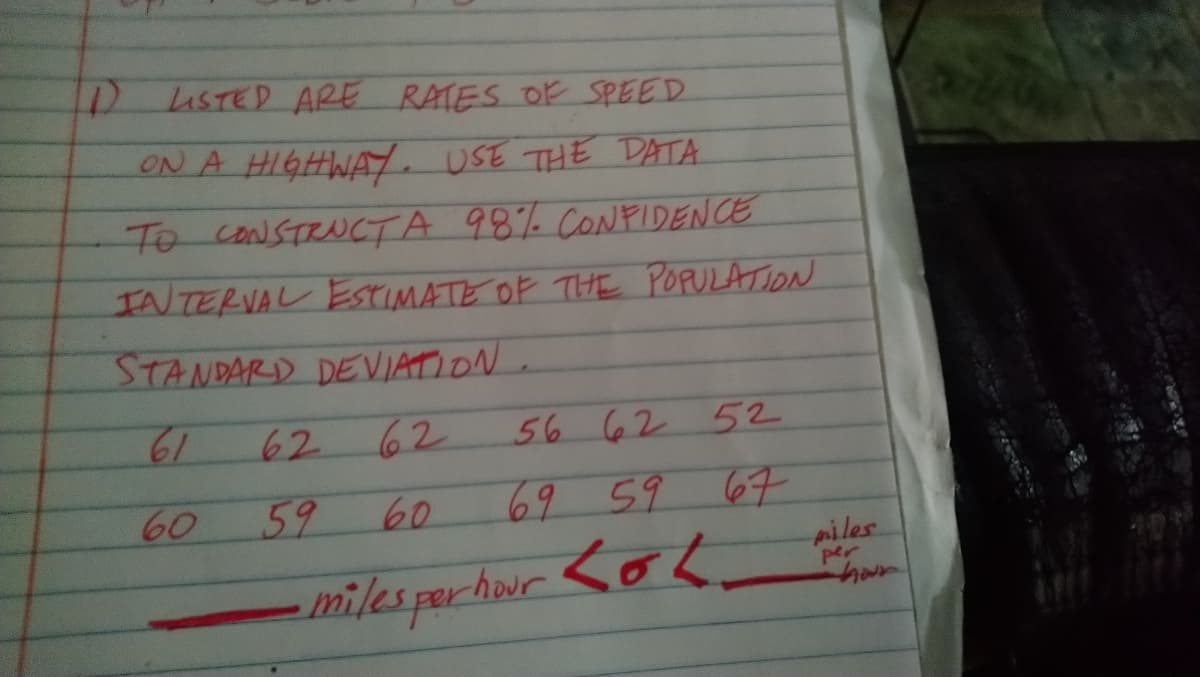 1) LISTED ARE RATES OF SPEED
ON A HIGHWAY. USE THE DATA
TO CONSTRUCT A 98% CONFIDENCE
INTERVAL ESTIMATE OF THE POPULATION
STANDARD DEVIATION.
61 62 62 56 62 52
60 59 60 69 59 67
____ miles per hour < σ < ____ miles per hour